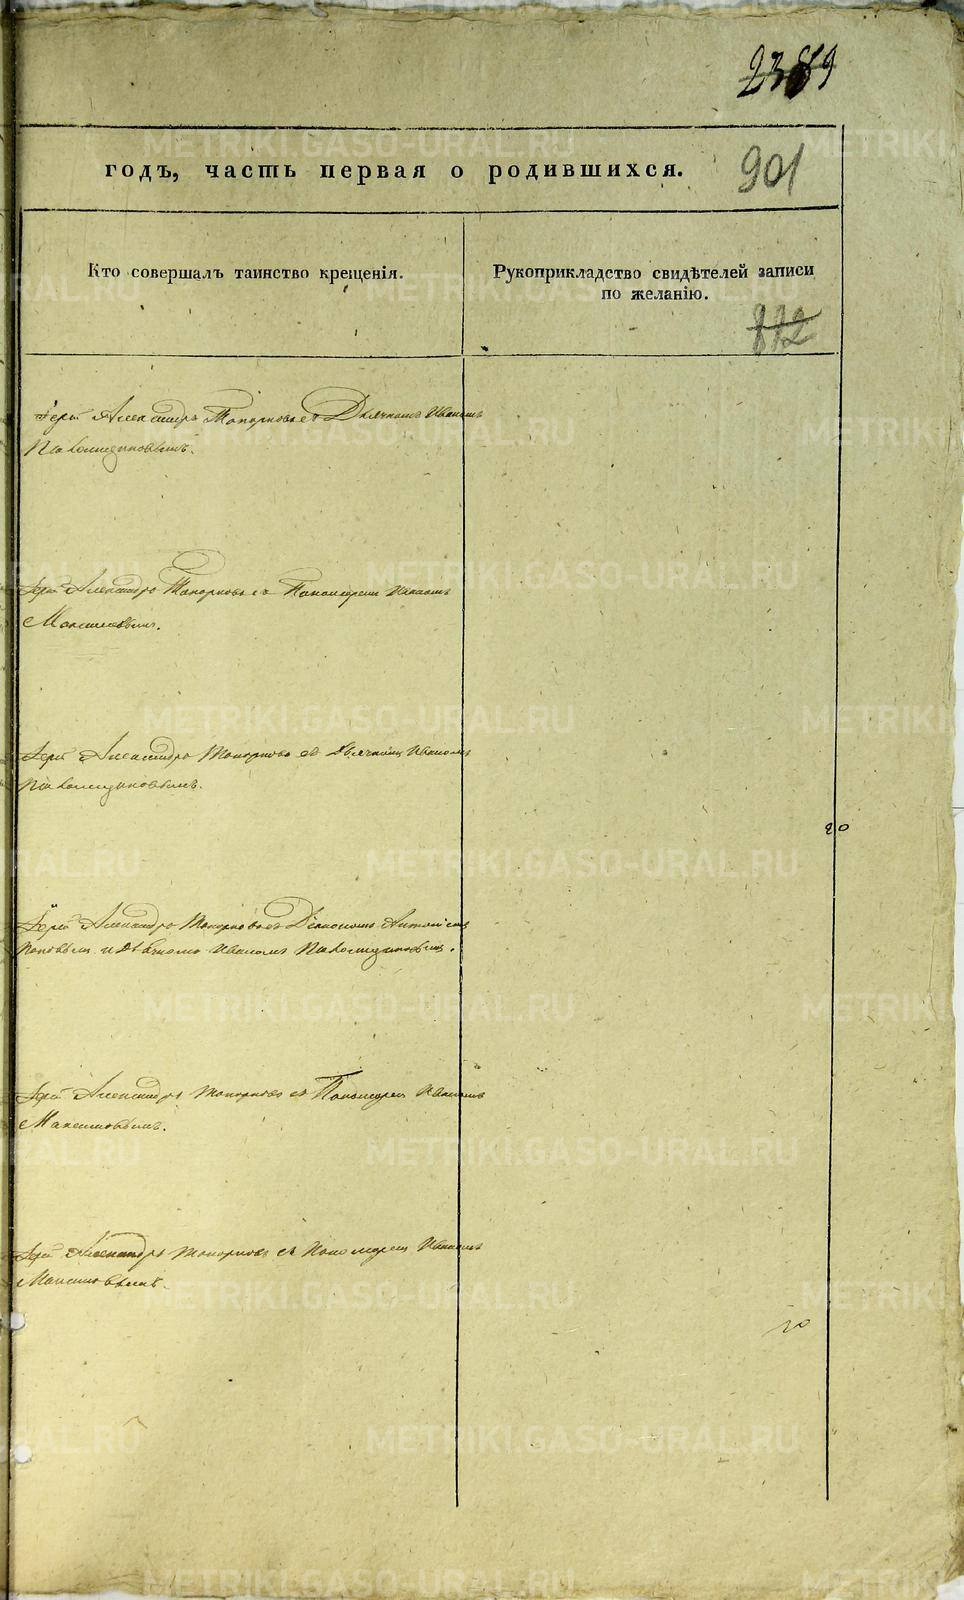 2389
годъ, часть первая о родившихся.
901
Кто совершалъ таинство крещенія.
Рукоприкладство свидѣтелей записи
по желанію.
872
Іерей Александръ Топорковъ съ Дьячкомъ Иваномъ
Іерей Александръ Топорковъ съ Пономаремъ Иваномъ
Максимовымъ.
Іерей Александръ Топорковъ съ Дьячкомъ Иваномъ
20
Іерей Александръ Топорковъ съ Діакономъ
Поповымъ и Дьячкомъ Иваномъ
Іерей Александръ Топорковъ съ Пономаремъ Иваномъ
Максимовымъ.
Іерей Александръ Топорковъ съ Пономаремъ Иваномъ
Максимовымъ.
METRIKI.GASO-URAL.RU